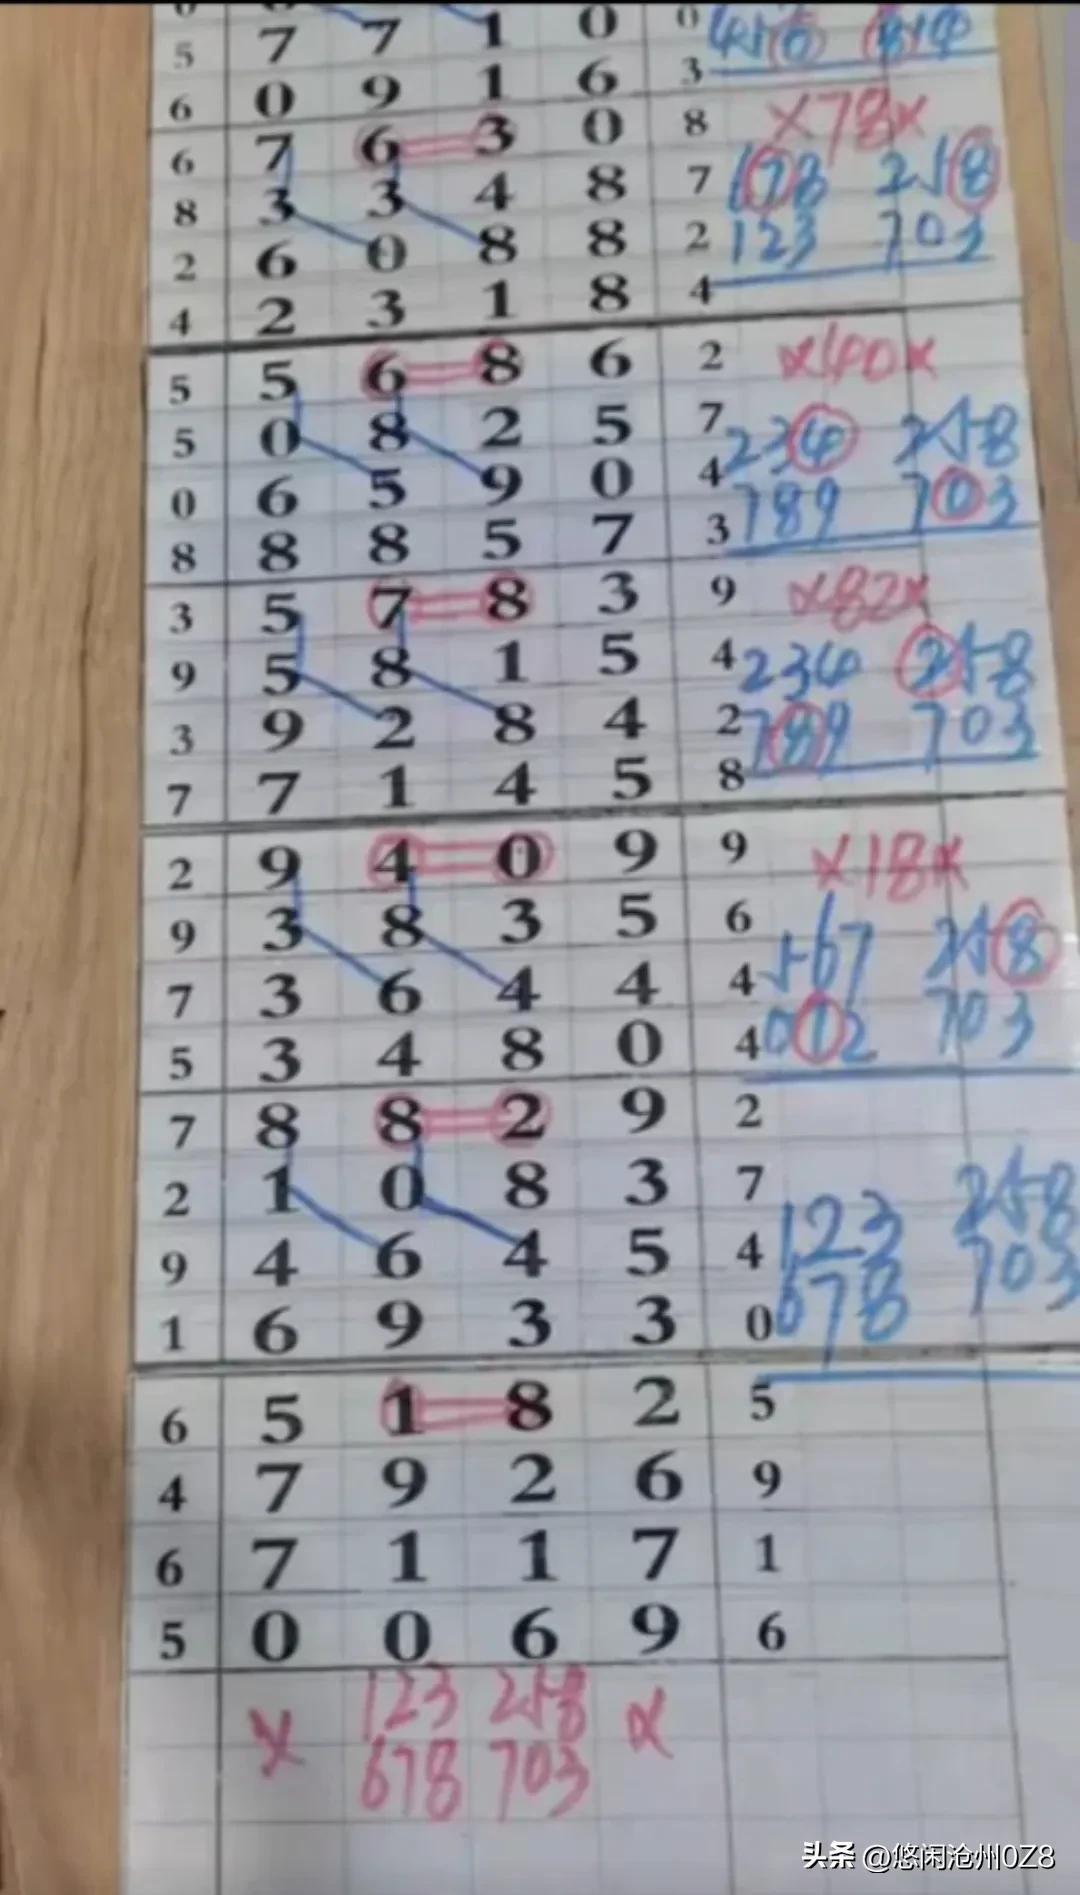 5 7 7 1 0 0
6 0 9 1 6 3
6 7 6 3 0 8 ×78×
8 3 3 4 8 7 178 258
2 6 0 8 8 2 123 703
4 2 3 1 8 4
5 5 6 8 6 2 ×40×
5 0 8 2 5 7 234 258
0 6 5 9 0 4 789 703
8 8 8 5 7 3
3 5 7 8 3 9 ×82×
9 5 8 1 5 4 234 258
3 9 2 8 4 2 789 703
7 7 1 4 5 8
2 9 4 0 9 9 ×18×
9 3 8 3 5 6 567 258
7 3 6 4 4 4 012 703
5 3 4 8 0 4
7 8 8 2 9 2
2 1 0 8 3 7 123 258
9 4 6 4 5 4 678 703
1 6 9 3 3 0
6 5 1 8 2 5
4 7 9 2 6 9
6 7 1 1 7 1
5 0 0 6 9 6
× 123 258 ×
678 703
头条 @悠闲沧州0Z8